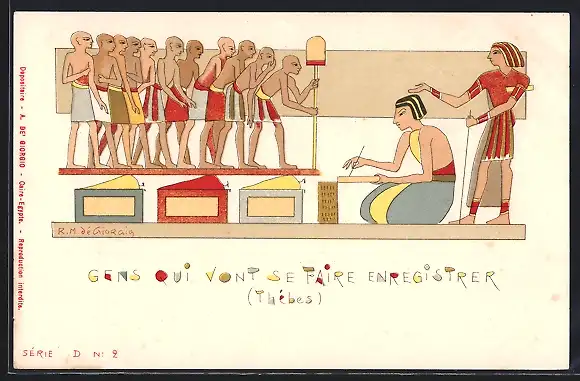 R. M. de GIORGIO
GENS QUI VONT SE FAIRE ENREGISTRER
(Thébes)
SÉRIE D N: 2
Depositaire - A. DE' GIORGIO - Caire-Egypte. - Reproduction interdite.